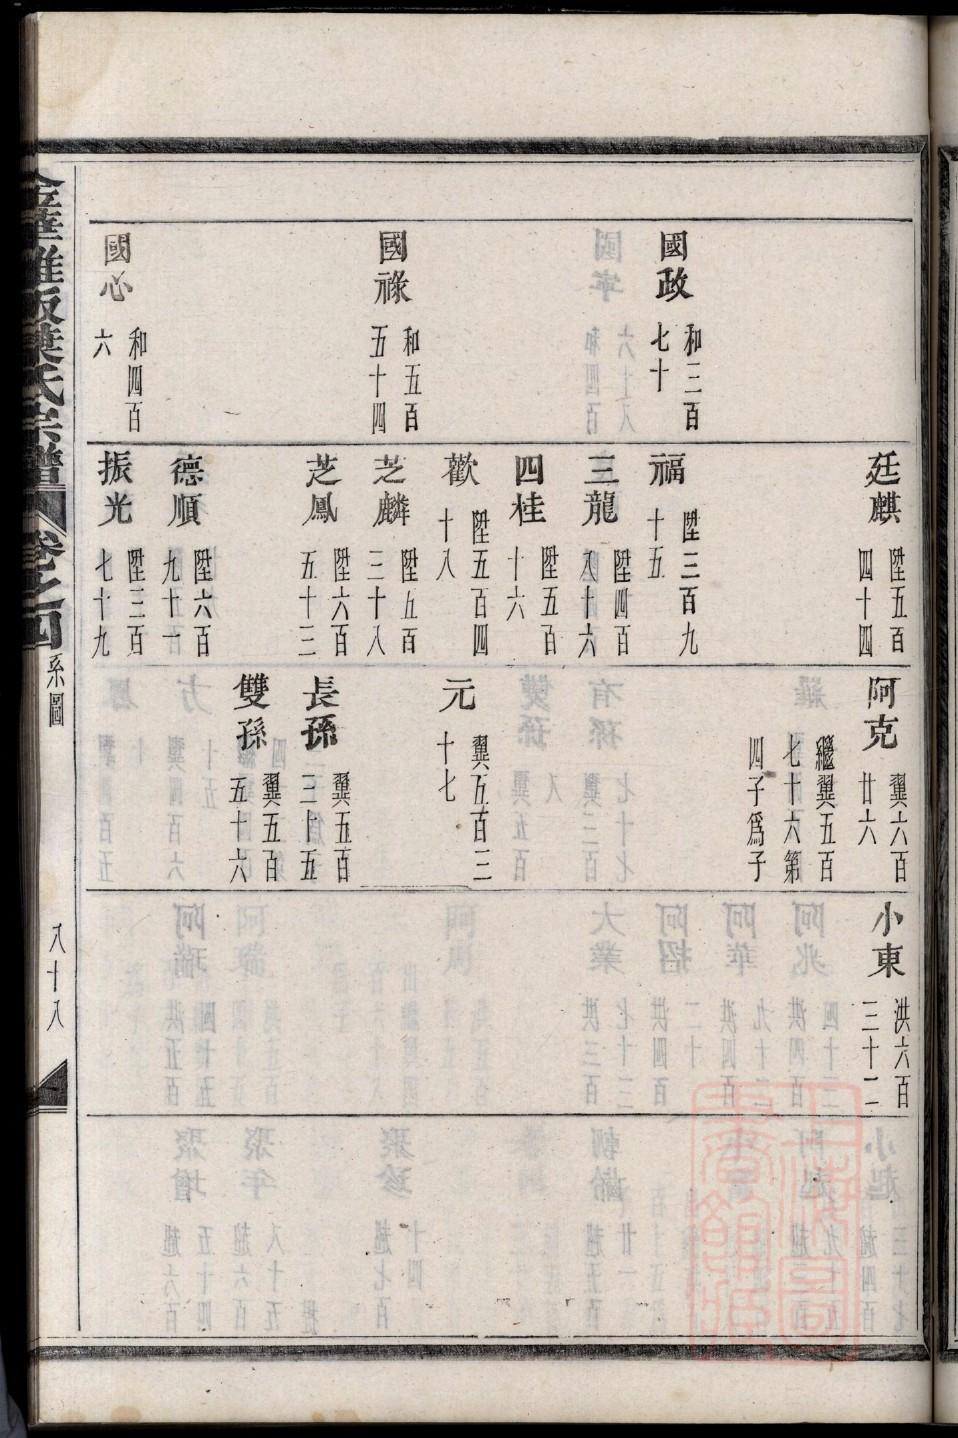 國政 和三百七十
國祿 和五百五十四
國必 和四百六
廷麒 陞五百四十四
福 陞三百九十五
三龍 陞四百八十六
四桂 陞五百十六
歡 陞五百四十八
芝麟 陞五百三十八
芝鳳 陞六百五十三
德順 陞六百九十一
振光 陞三百七十九
阿克 翼六百廿六
繼翼五百七十六第四子爲子
元 翼五百三十七
長孫 翼五百三十五
雙孫 翼五百五十六
小東 洪六百三十二
金華雅畈葉氏宗譜 卷之四 系圖 八十八